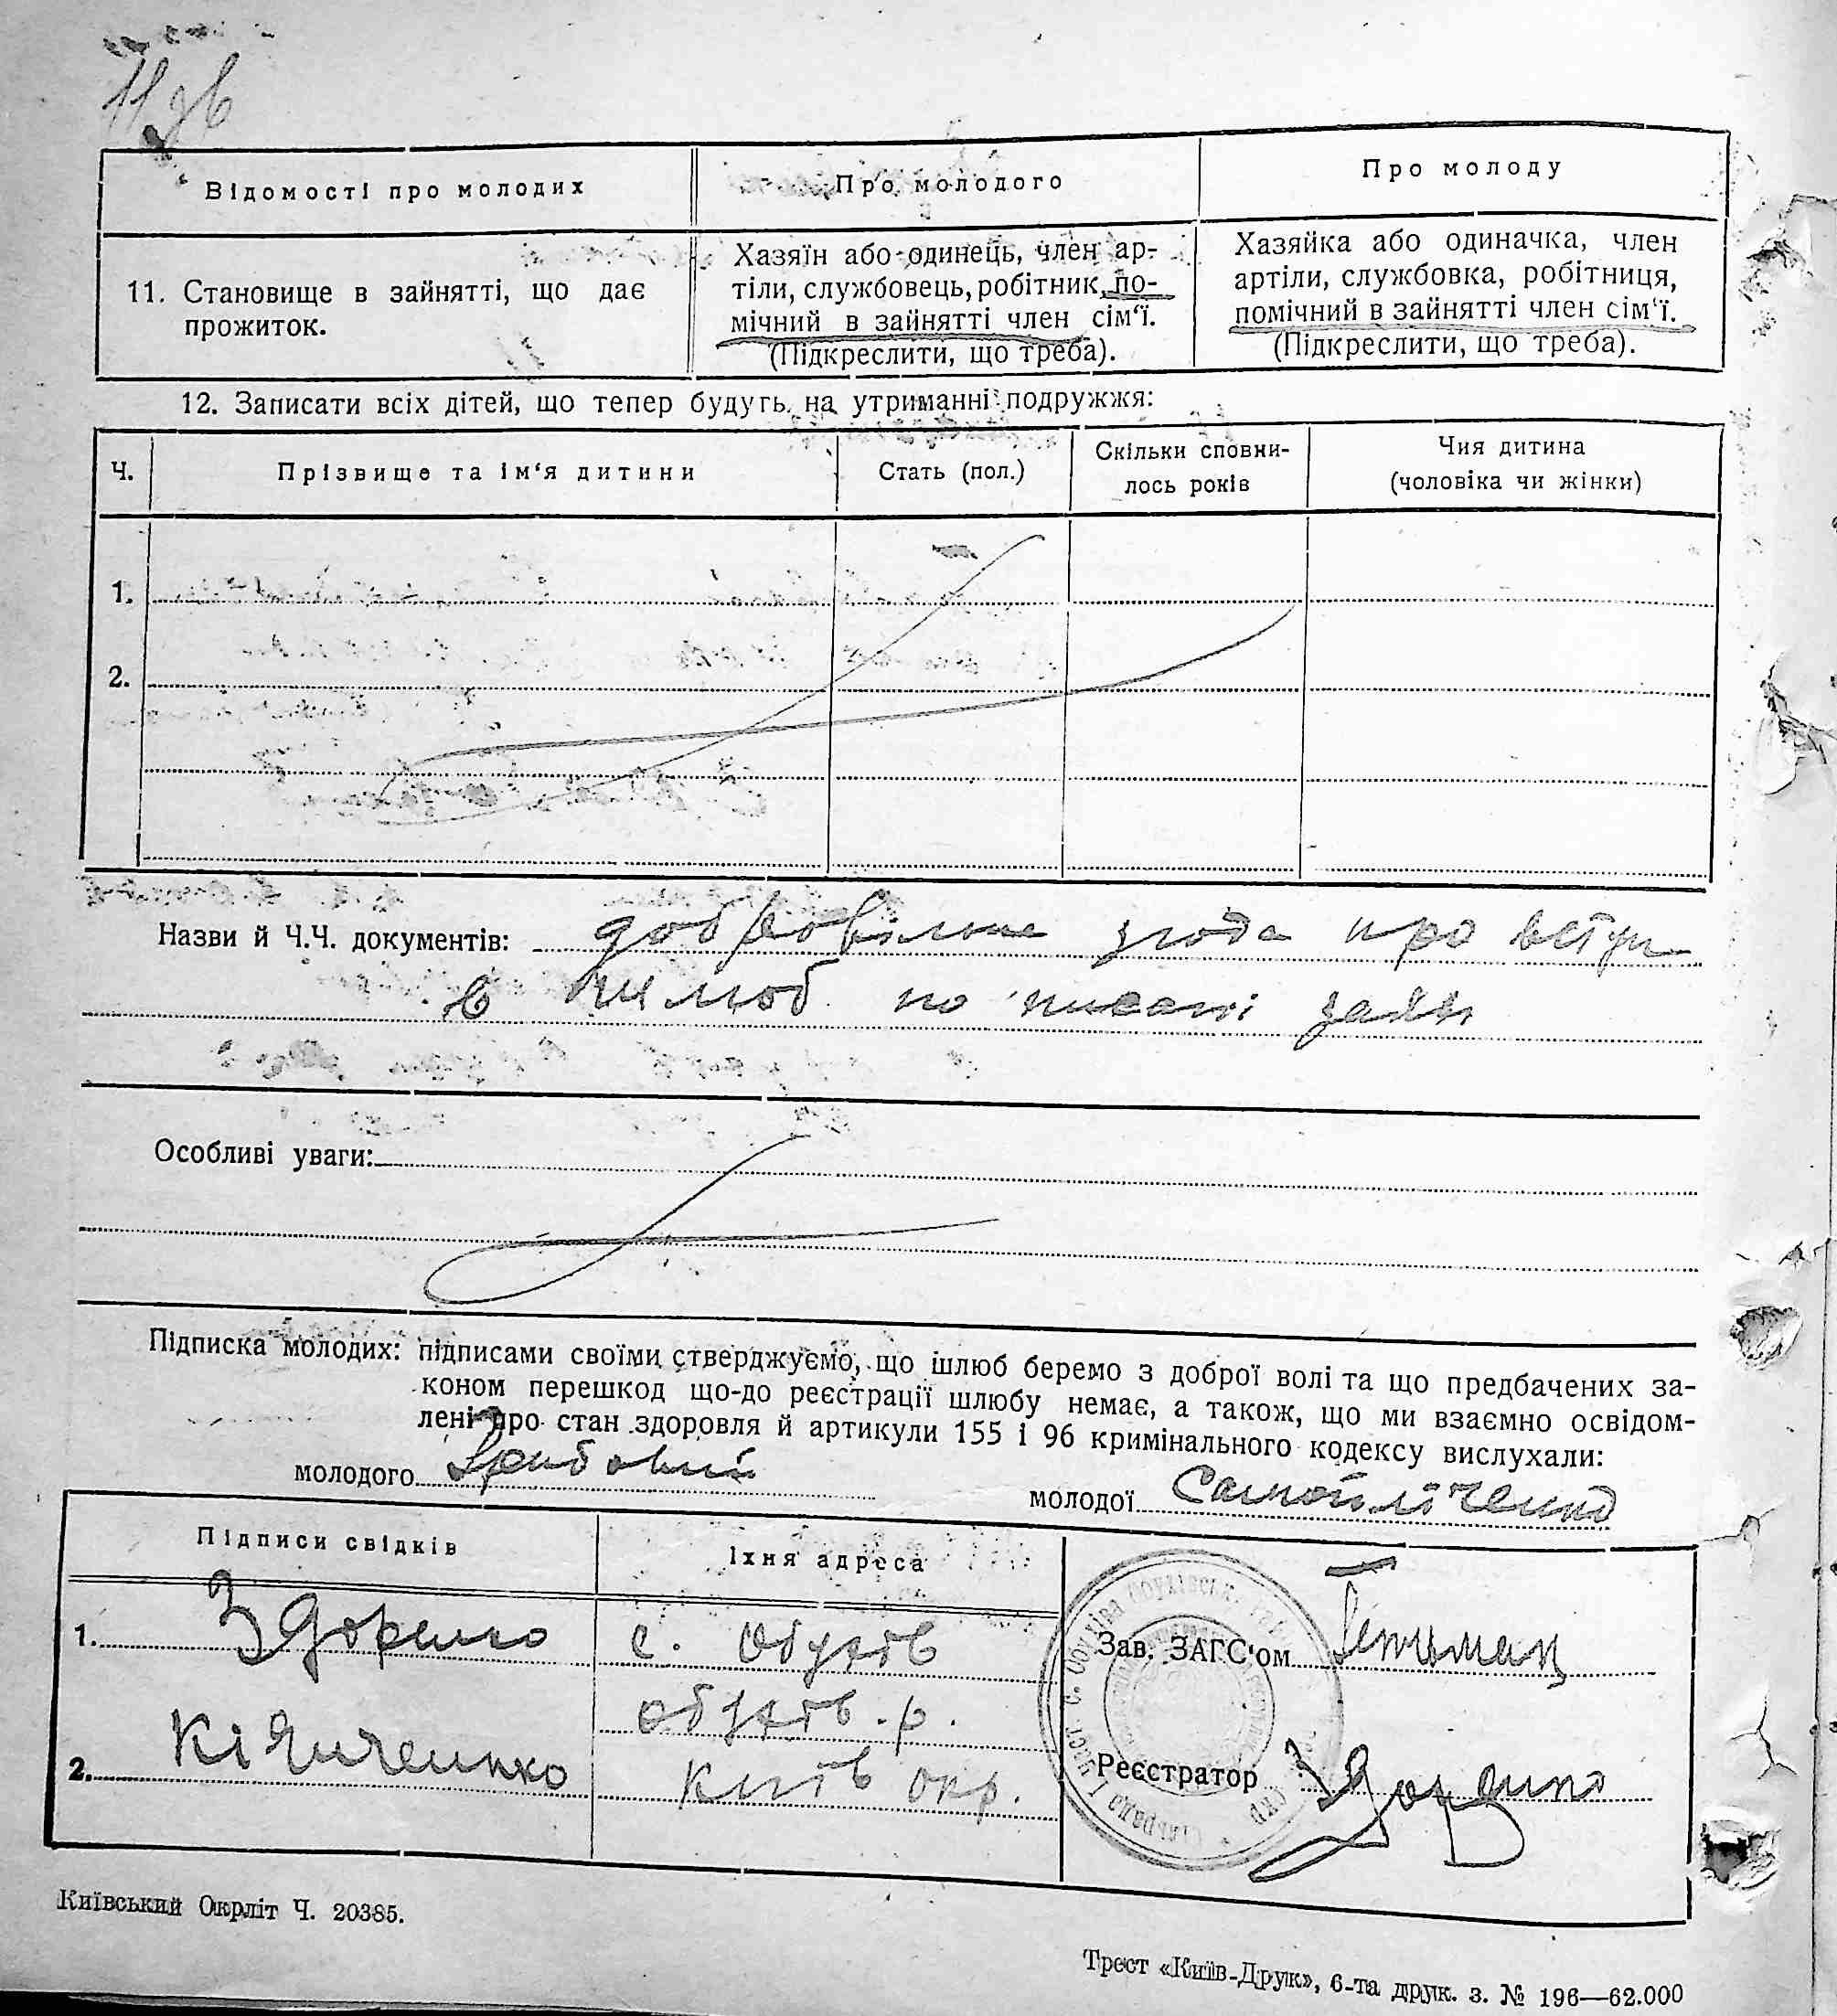 11 зв
Відомості про молодих
Про молодого
Про молоду
11. Становище в зайнятті, що дає
прожиток.
Хазяїн або одинець, член ар-
тіли, службовець, робітник, по-
мічний в зайнятті член сім‘ї.
(Підкреслити, що треба).
Хазяйка або одиначка, член
артіли, службовка, робітниця,
помічний в зайнятті член сім‘ї.
(Підкреслити, що треба).
12. Записати всіх дітей, що тепер будуть на утриманні подружжя:
Ч.
Прізвище та ім‘я дитини
Стать (пол.)
Скільки сповни-
лось років
Чия дитина
(чоловіка чи жінки)
1.
2.
Назви й Ч.Ч. документів: добровільна згода про вступ
в шлюб по писані заяви
Особливі уваги:
Підписка молодих: підписами своїми стверджуємо, що шлюб беремо з доброї волі та що предбачених за-
коном перешкод що-до реєстрації шлюбу немає, а також, що ми взаємно освідом-
лені про стан здоровля й артикули 155 і 96 кримінального кодексу вислухали:
молодого
молодої Самойличенко
Підписи свідків
Їхня адреса
1. с. Обухів
Обухів. р.
2. Київ окр.
Зав. ЗАГС‘ом Гетьман
Реєстратор
Київський Окрліт Ч. 20385.
Трест «Київ-Друк», 6-та друк. з. № 196—62.000